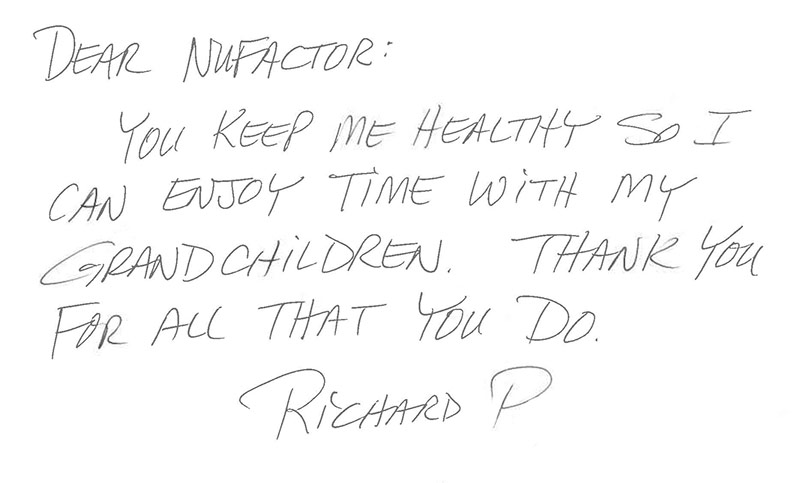 DEAR NUFACTOR:
YOU KEEP ME HEALTHY SO I
CAN ENJOY TIME WITH MY
GRANDCHILDREN. THANK YOU
FOR ALL THAT YOU DO.
RICHARD P